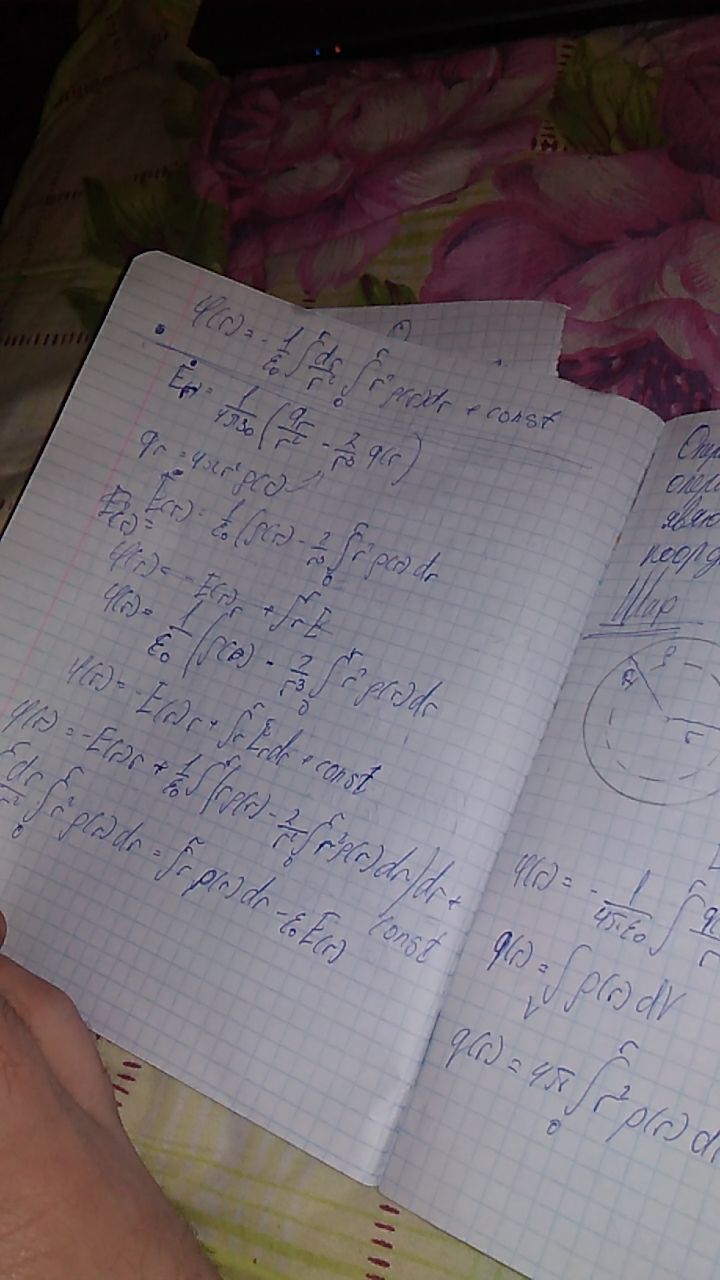 φ(r) = -1/ε₀ ∫ dr/r² ∫₀ʳ r² ρ(r) dr + const
Ėᵣ = 1/4πε₀ (qᵣ/r² - 2/r³ q(r))
qᵣ = 4πr² ρ(r)
Ė(r) = 1/ε₀ (ρ(r) - 2/r³ ∫₀ʳ r² ρ(r) dr
E(r) =
φ(r) = -E(r) r + ∫ r Ė
φ(r) =
1/ε₀ (ρ(r) - 2/r³ ∫₀ʳ r² ρ(r) dr
φ(r) = -E(r) r + ∫ r Ėᵣ dr + const
φ(r) = -E(r) r + 1/ε₀ ∫ (r ρ(r) - 2/r² ∫₀ʳ r² ρ(r) dr) dr +
const
dr/r² ∫₀ʳ r² ρ(r) dr = ∫ r ρ(r) dr - ε₀ E(r)
Шар
R
r
φ(r) = - 1/4πε₀ ∫
q(r) = ∫ᵥ ρ(r) dV
q(r) = 4π ∫₀ʳ r² ρ(r) d